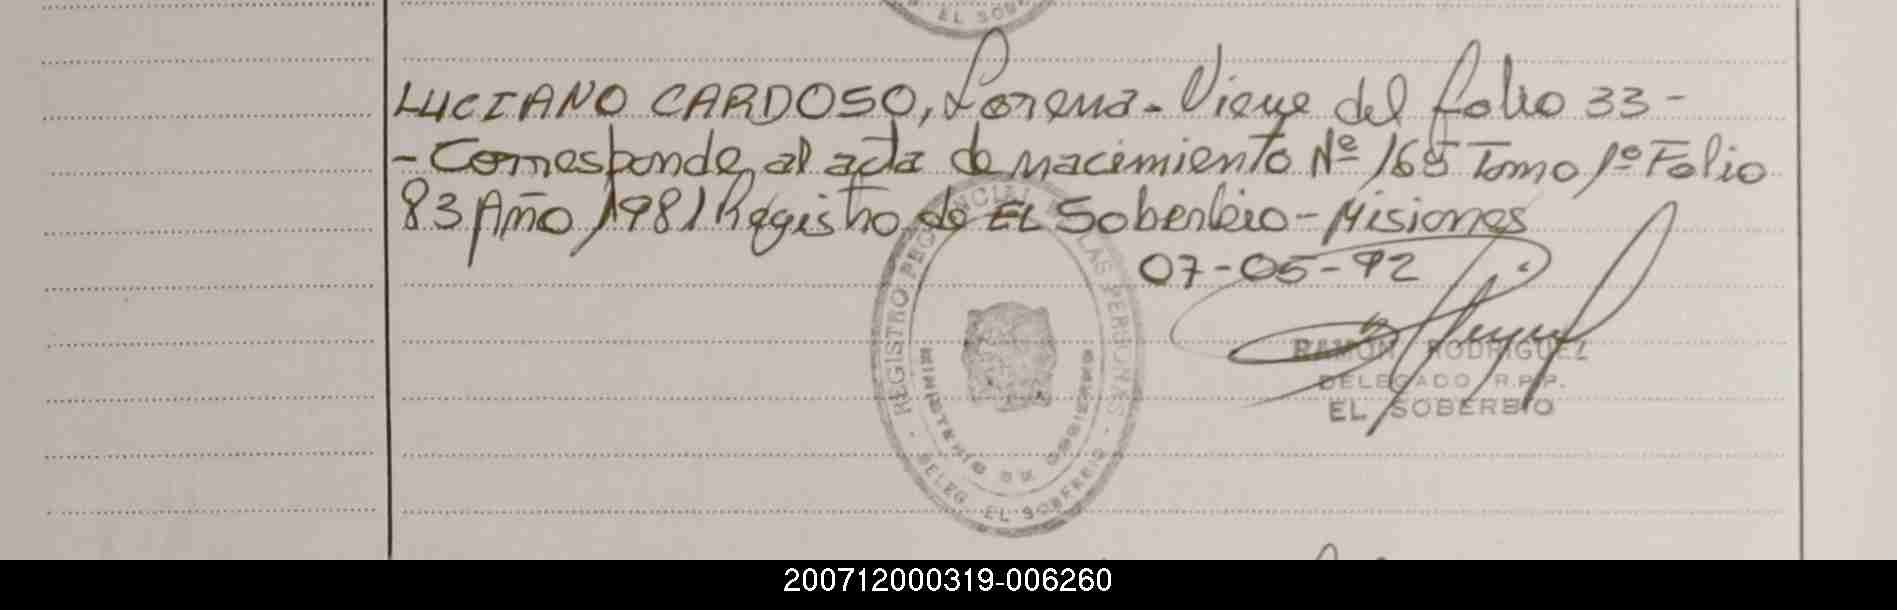 EL SOB
LUCIANO CARDOSO, Lorena - Viene del folio 33 -
- Corresponde al acta de nacimiento Nº 165 Tomo 1º Folio
83 Año 1981 Registro de EL Soberbio - Misiones
07-05-92
REGISTRO PROVINCIAL DE LAS PERSONAS
MINISTERIO DE GOBIERNO
- DELEG. EL SOBERBIO -
RAMON RODRIGUEZ
DELEGADO R.P.P.
EL SOBERBIO
200712000319-006260